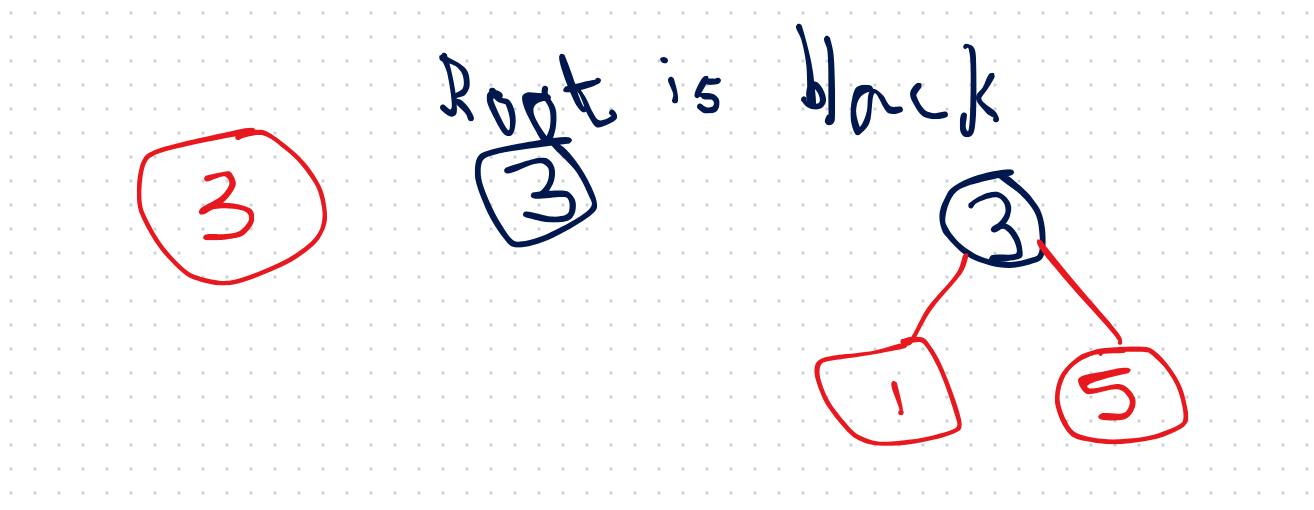 Root is black
3 3 3
1 5